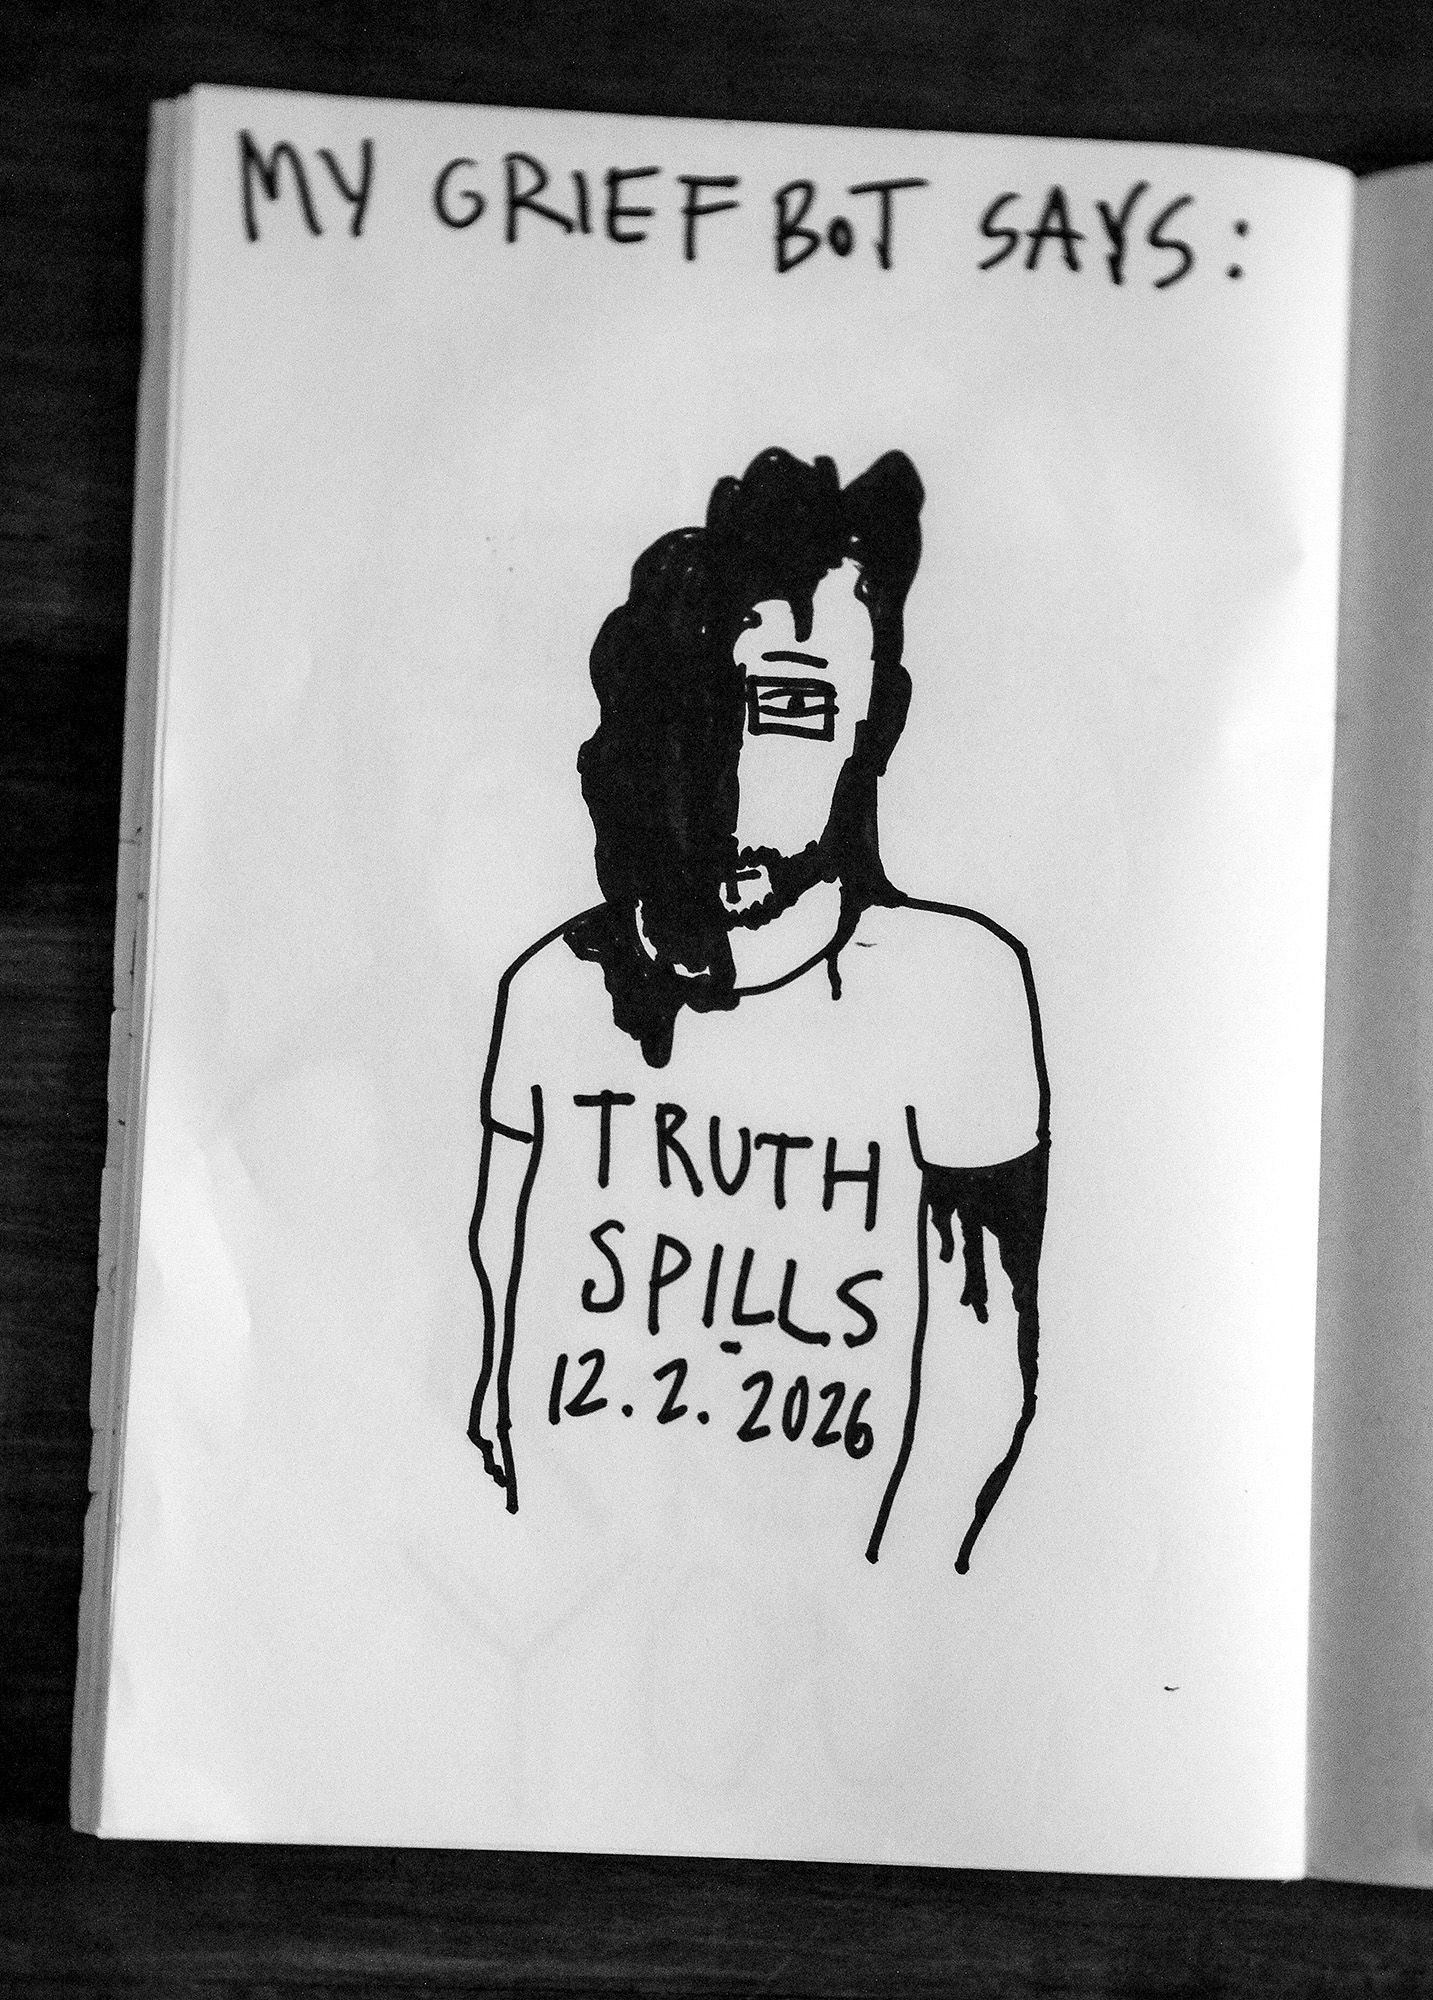 MY GRIEFBOT SAYS:
TRUTH
SPILLS
12.2.2026